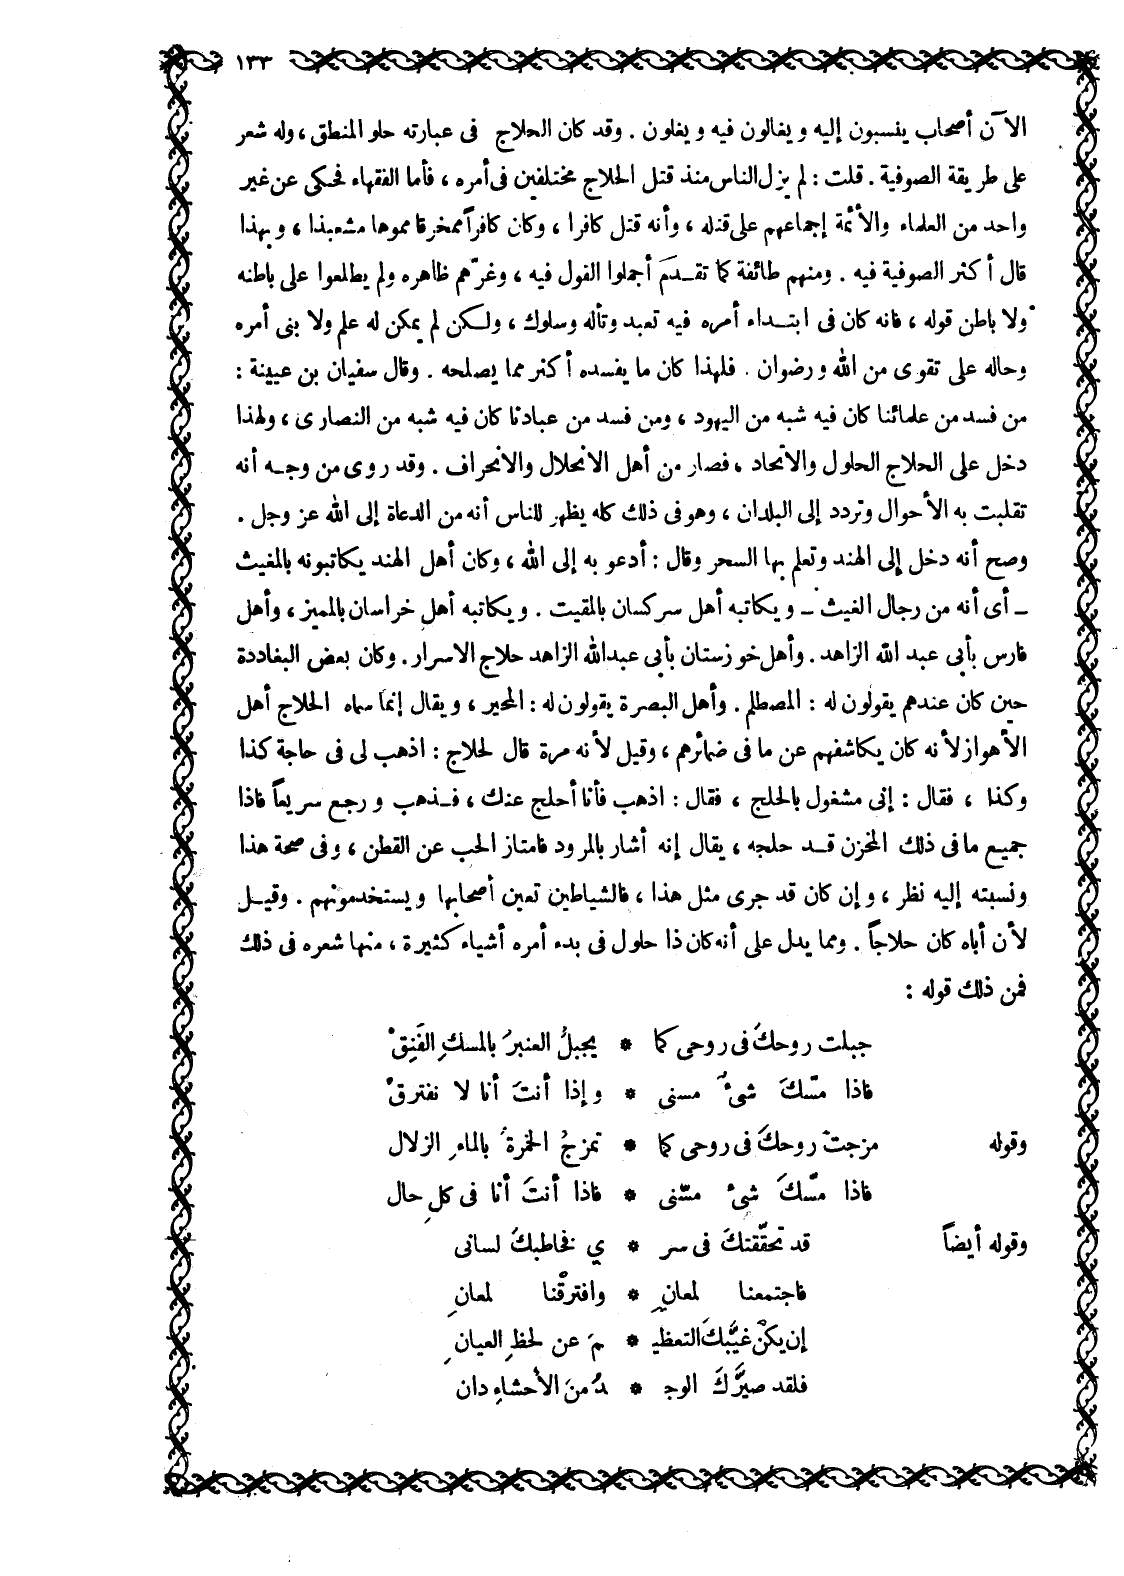 ١٣٣
الآن أصحاب ينسبون إليه ويغالون فيه ويغلون . وقد كان الحلاج فى عبارته حلو المنطق ، وله شعر
على طريقة الصوفية . قلت : لم يزل الناس منذ قتل الحلاج مختلفين فى أمره ، فأما الفقهاء فحكى عن غير
واحد من العلماء والأئمة إجماعهم على قتله ، وأنه قتل كافرا ، وكان كافراً ممخرقا مموها مشعبذا ، وبهذا
قال أكثر الصوفية فيه . ومنهم طائفة كما تقدم أجملوا القول فيه ، وغرهم ظاهره ولم يطلعوا على باطنه
ولا باطن قوله ، فانه كان فى ابتداء أمره فيه تعبد وتأله وسلوك ، ولكن لم يكن له علم ولا بنى أمره
وحاله على تقوى من الله ورضوان . فلهذا كان ما يفسده أكثر مما يصلحه . وقال سفيان بن عيينة :
من فسد من علمائنا كان فيه شبه من اليهود ، ومن فسد من عبادنا كان فيه شبه من النصارى ، ولهذا
دخل على الحلاج الحلول والاتحاد ، فصار من أهل الانحلال والانحراف . وقد روى من وجه أنه
تقلبت به الأحوال وتردد إلى البلدان ، وهو فى ذلك كله يظهر للناس أنه من الدعاة إلى الله عز وجل .
وصح أنه دخل إلى الهند وتعلم بها السحر وقال : أدعو به إلى الله ، وكان أهل الهند يكاتبونه بالمغيث
ــ أى أنه من رجال الغيث ــ ويكاتبه أهل سركسان بالمقيت . ويكاتبه أهل خراسان بالمميز ، وأهل
فارس بأبى عبد الله الزاهد . وأهل خوزستان بأبى عبد الله الزاهد حلاج الاسرار . وكان بعض البغاددة
حين كان عندهم يقولون له : المصطلم . وأهل البصرة يقولون له : المحير ، ويقال إنما سماه الحلاج أهل
الأهواز لأنه كان يكاشفهم عن ما فى ضمائرهم ، وقيل لأنه مرة قال لحلاج : اذهب لى فى حاجة كذا
وكذا ، فقال : إنى مشغول بالحلج ، فقال : اذهب فأنا أحلج عنك ، فذهب ورجع سريعاً فاذا
جميع ما فى ذلك المخزن قد حلجه ، يقال إنه أشار بالمرود فامتاز الحب عن القطن ، وفى صحة هذا
ونسبته إليه نظر ، وإن كان قد جرى مثل هذا ، فالشياطين تعين أصحابها ويستخدمونهم . وقيل
لأن أباه كان حلاجاً . ومما يدل على أنه كان ذا حلول فى بدء أمره أشياء كثيرة ، منها شعره فى ذلك
فمن ذلك قوله :
جبلت روحكَ فى روحى كما * يجبلُ العنبرُ بالمسكِ الفَنِقْ
فاذا مسّكَ شئٌ مسنى * وإذا أنتَ أنا لا نفترقْ
وقوله مزجتْ روحكَ فى روحى كما * تمزجُ الخمرةُ بالماءِ الزلال
فاذا مسّكَ شئٌ مسّنى * فاذا أنتَ أنا فى كلِ حال
وقوله أيضاً قد تحقّقتكَ فى سر * ي فخاطبكَ لسانى
فاجتمعنا لمعانٍ * وافترقْنا لمعانِ
إن يكنْ غيَّبكَ التعظيـ * مَ عن لحظِ العيانِ
فلقد صيَّركَ الوجـ * دُ منَ الأحشاءِ دان